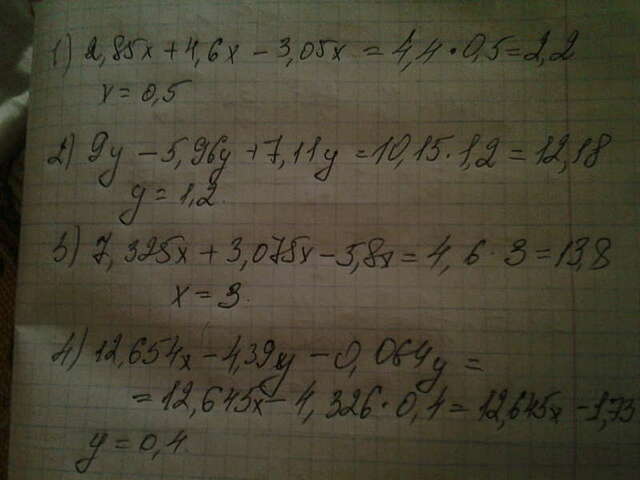 1) 2,85x + 4,6x - 3,05x = 4,4 · 0,5 = 2,2
x = 0,5
2) 9y - 5,96y + 7,11y = 10,15 · 1,2 = 12,18
y = 1,2.
3) 7,325x + 3,075x - 5,8x = 4,6 · 3 = 13,8
x = 3.
4) 12,654x - 4,39y - 0,064y =
= 12,645x - 4,326 · 0,4 = 12,645x - 1,73
y = 0,4.